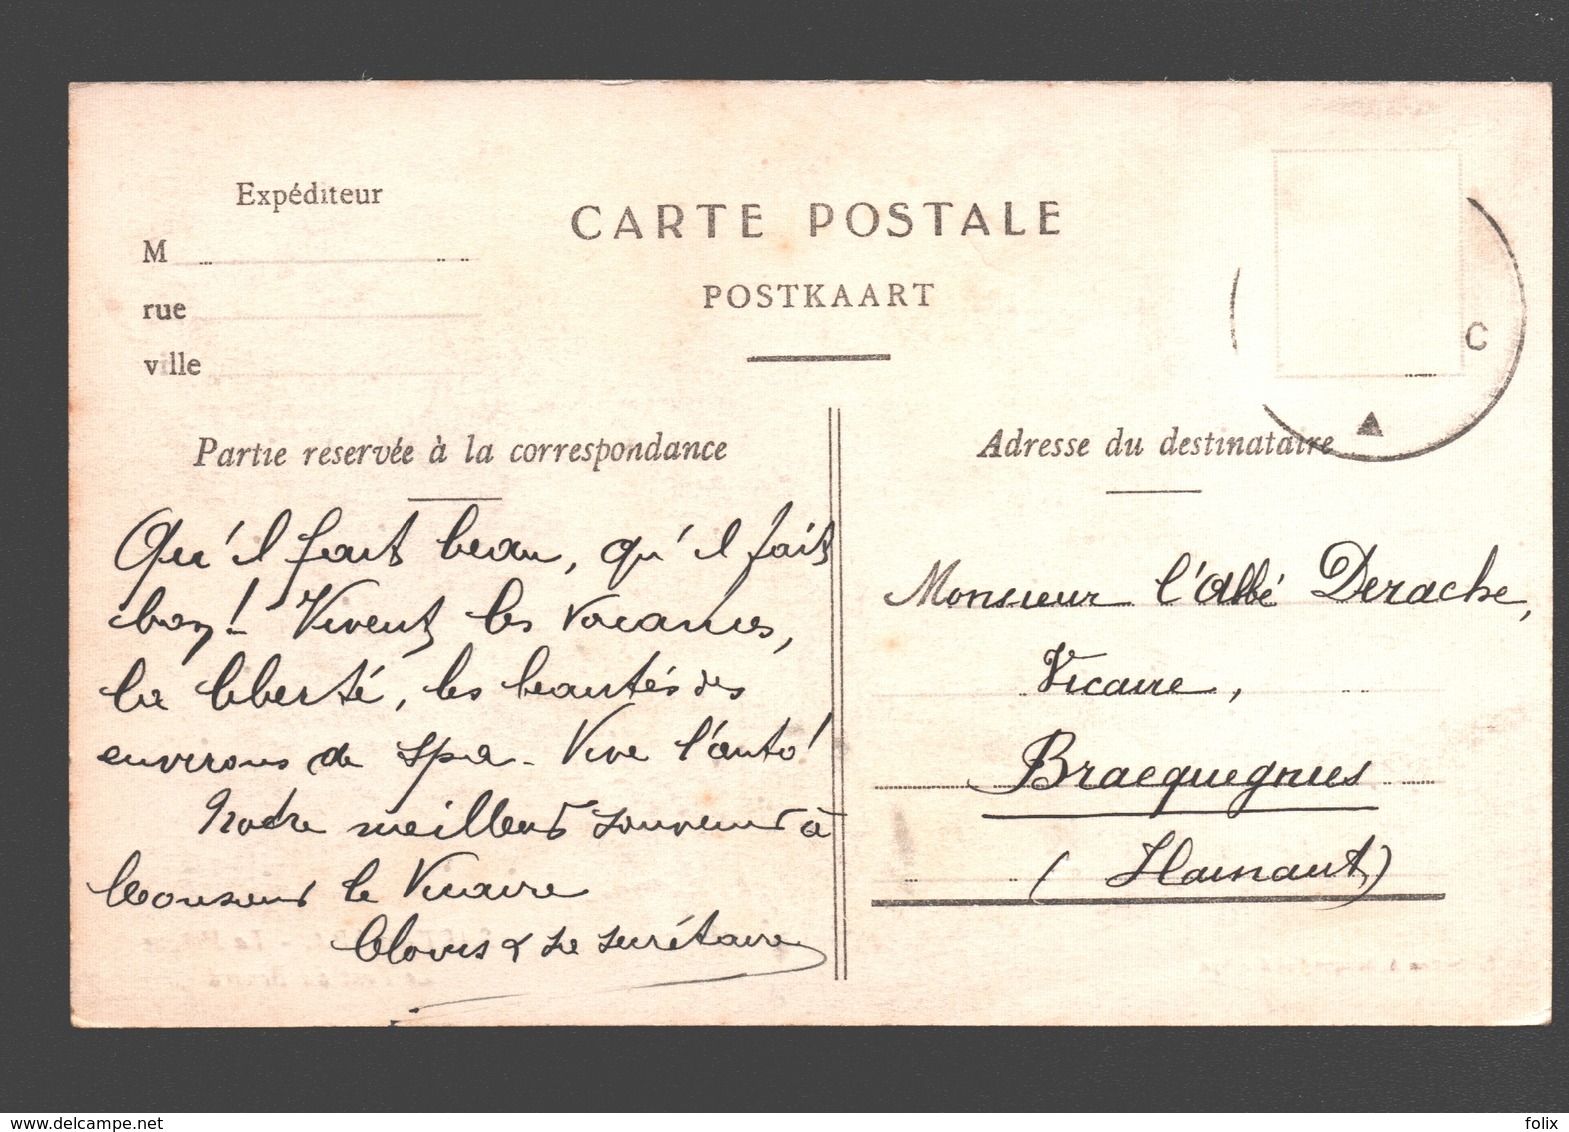 Expéditeur
M
rue
ville
CARTE POSTALE
POSTKAART
C
Partie reservée à la correspondance
Adresse du destinataire
Qu'il fait beau, qu'il fait
bon! Vivent les vacances,
la liberté, les beautés des
environs de Spa - Vive l'auto!
Notre meilleurs souvenirs à
Monsieur le Vicaire
Clovis & le secrétaire
Monsieur l'abbé Derache,
Vicaire,
Bracquegnies
(Hainaut)
felix